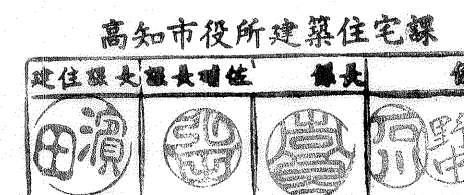 高知市役所建築住宅課
建住課長 課長補佐 係長 係
濵田 野中